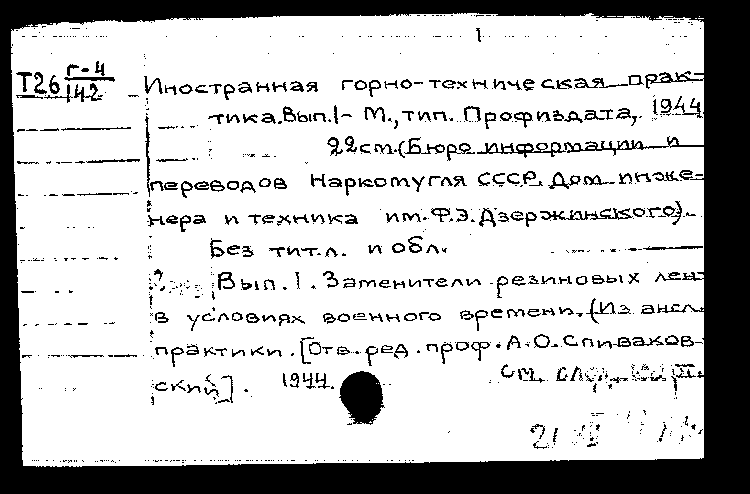 1
Т26 г-4
142
Иностранная горно-техническая прак-
тика. Вып.1- М., тип. Профиздата, 1944
22см. (Бюро информации и
переводов Наркомугля СССР. Дом инже-
нера и техника им. Ф.Э. Дзержинского).
Без тит.л. и обл.
2 экз. Вып. 1. Заменители резиновых лент
в условиях военного времени. (Из англ.
практики. [Отв. ред. проф. А.О. Спиваков-
ский]. 1944.
См. след. карт.
21